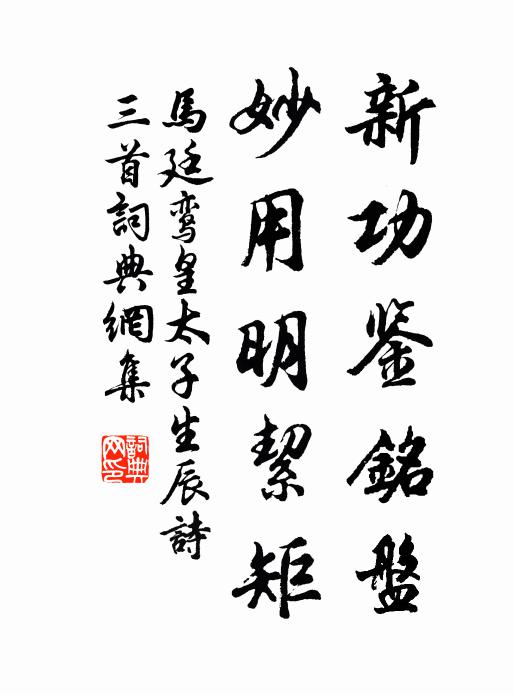 新功鉴銘盤
妙用明絜矩
馬廷鸾皇太子生辰詩
三首詞典網集
詞典網印